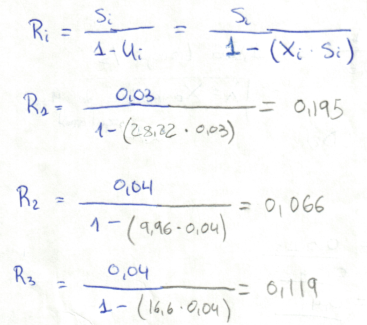 Ri = Si / 1-Ui = Si / 1-(Xi · Si)
R1 = 0,03 / 1-(28,22 · 0,03) = 0,195
R2 = 0,04 / 1-(9,96·0,04) = 0,066
R3 = 0,04 / 1-(16,6·0,04) = 0,119